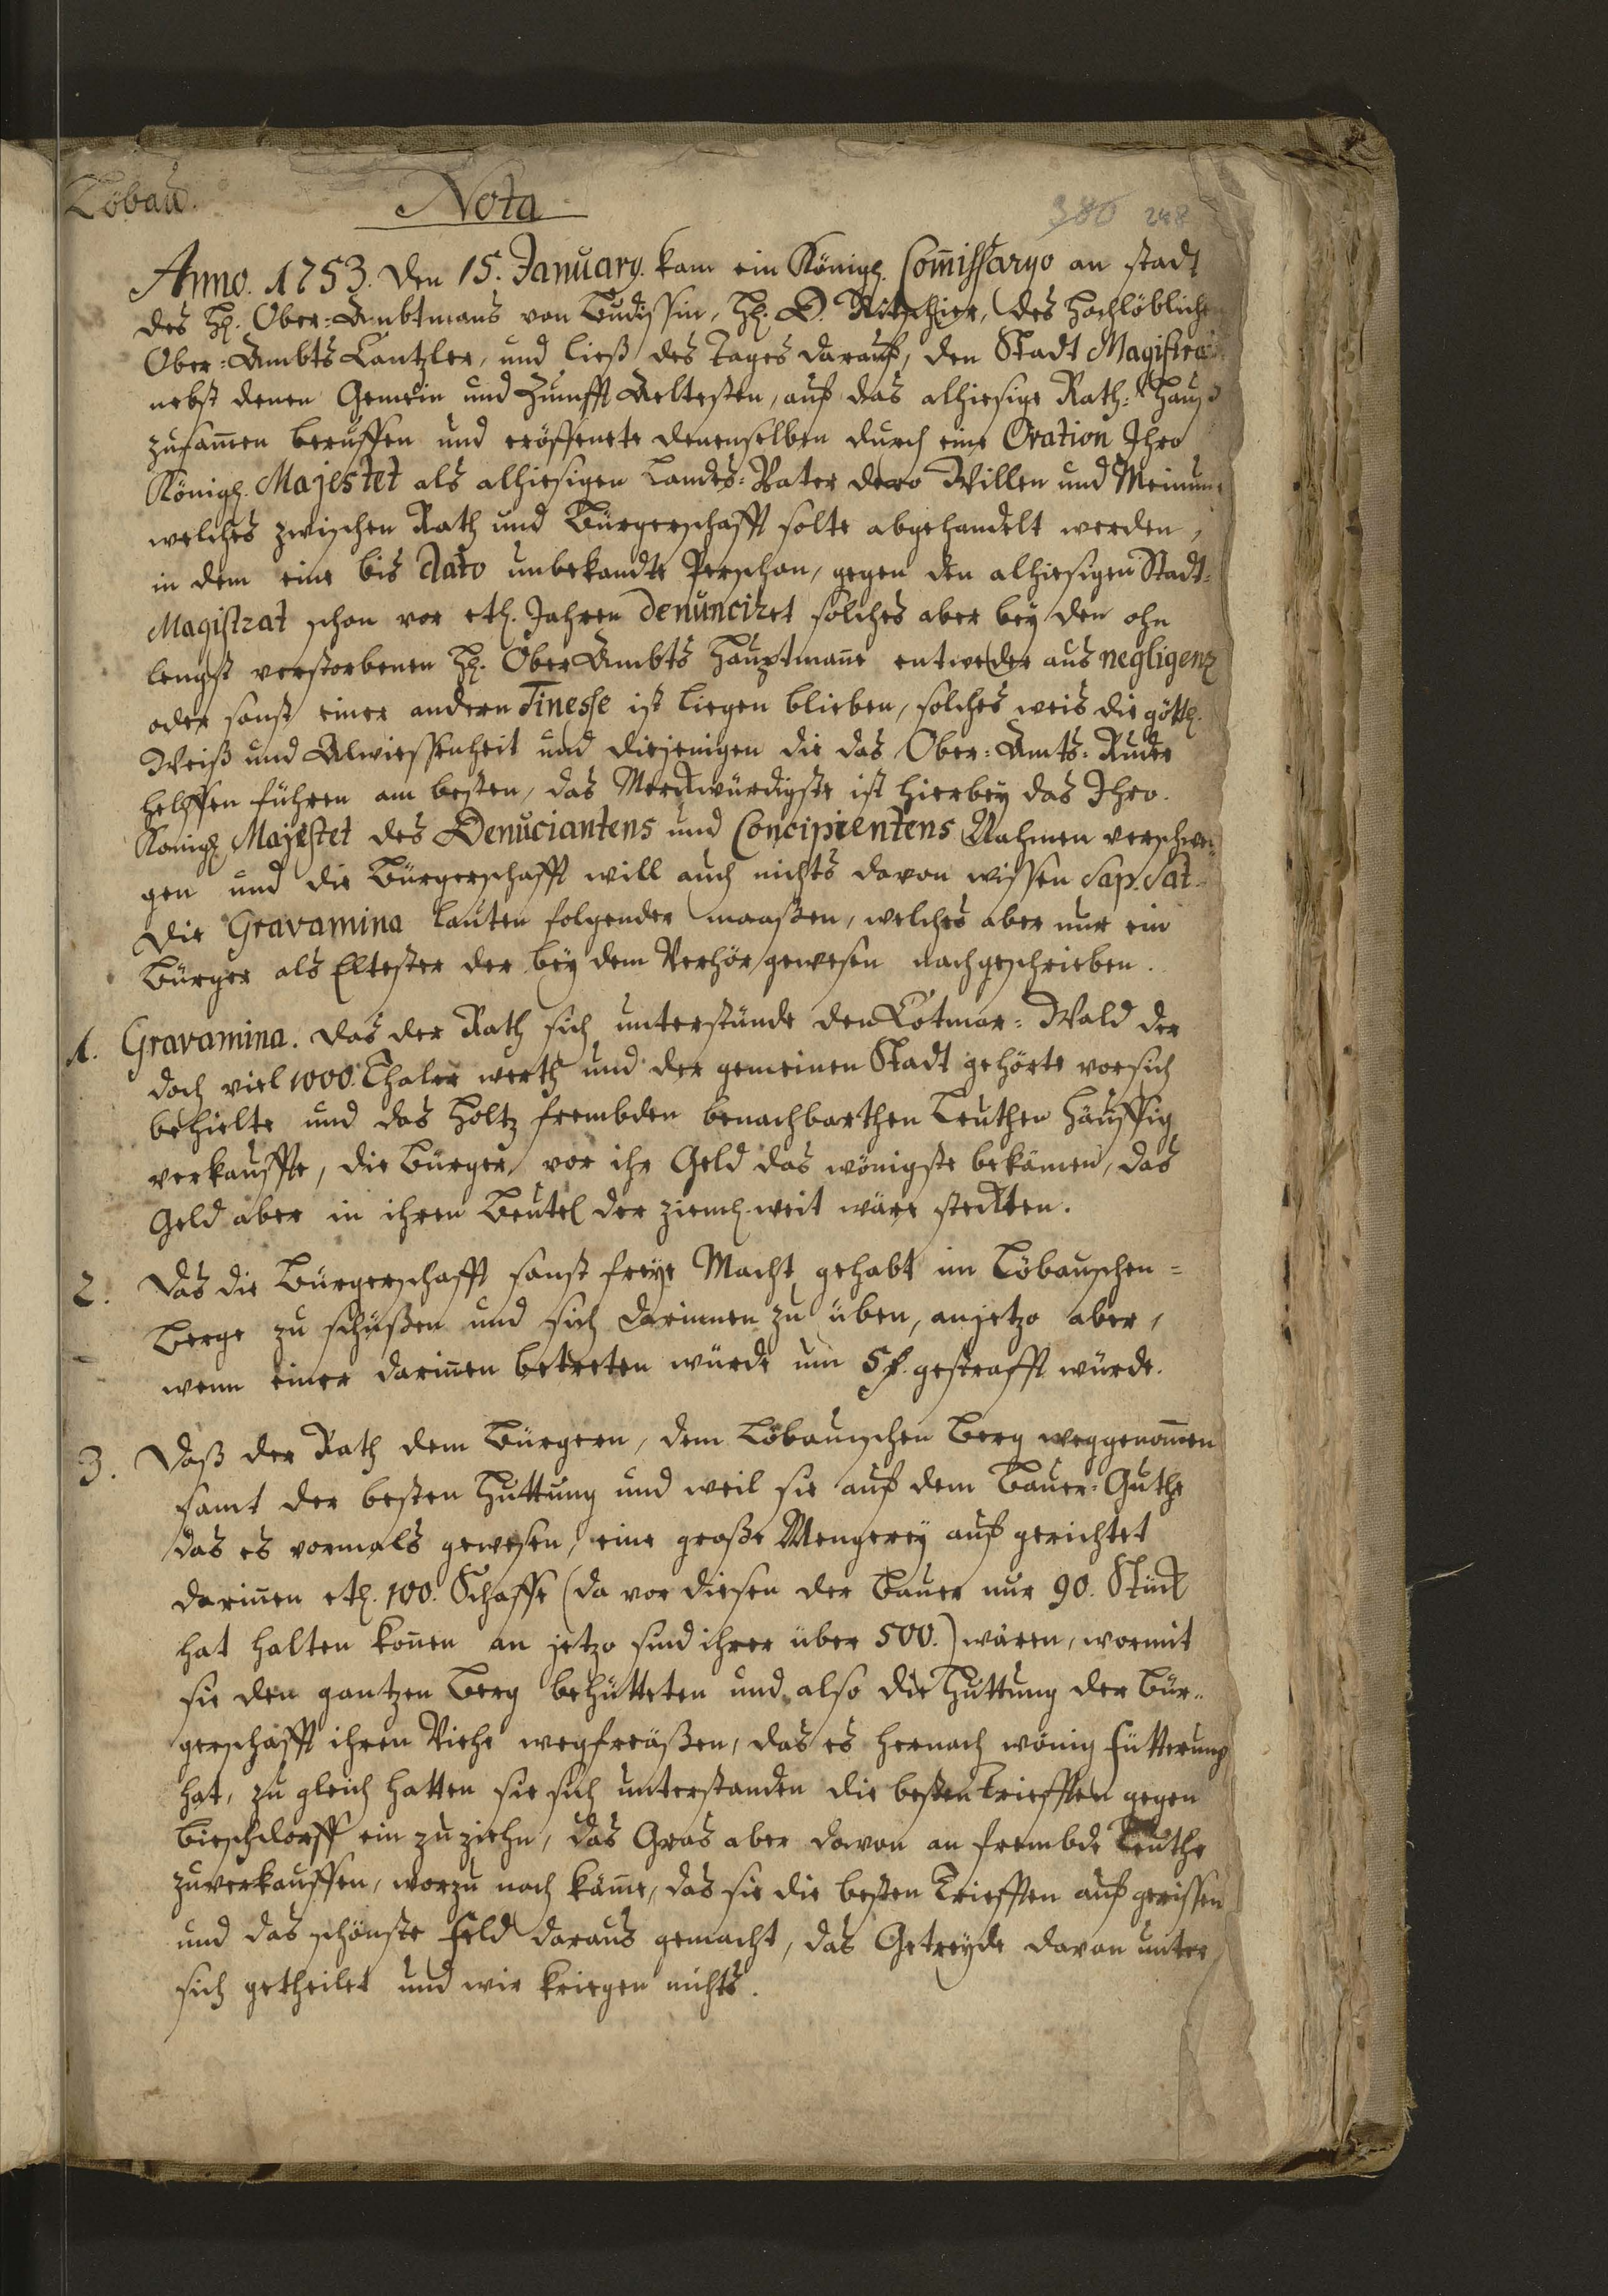 Löbau.
Nota
380 248
Anno. 1753. den 15. January. kam ein Königl. Com̃issaryo an stadt
des H. Ober-Ambtmans von Budissin, H. D. des Hochlöblichen
Ober-Ambts Cantzler, und ließ des Tages darauf, den Stadt Magistrat
nebst denen Gemein und Zunfft Aeltesten, auf das alhiesige Rath-Hauß
zusam̃en beruffen und eröffenete denenselben durch eine Oration Ihro
Königl. Majestet als alhiesigen Landes-Vater dero Willen und Meinung
welches zwischen Rath und Bürgerschafft solte abgehandelt werden,
in dem eine bis dato unbekandte Perschon, gegen den alhiesigen Stadt-
Magistrat schon vor etl. Jahren denunciret solches aber bey den ohn
lengst verstorbenen H. Ober Ambts Hauptman̄ entweder aus negligenz
oder sonst einer andern Finesse ist liegen blieben, solches weis die göttl.
Weiß und Alwissenheit und diejenigen die das Ober-Amts-Ruder
helffen führen am besten, das Merckwürdigste ist hierbey das Ihro.
Königl. Majestet des Denuciantens und Concipientens Nahmen verschwei-
gen und die Bürgerschafft will auch nichts davon wissen Sap. Sat.
Die Gravamina lauten folgender maaßen, welches aber nur ein
Bürger als Eltester der bey dem Verhör gewesen nachgeschrieben.
1. Gravamina. Das der Rath sich unterstünde den Cotmar-Wald der
doch viel 1000. Thaler werth und der gemeinen Stadt gehörte vor sich
behielte und das Holtz frembden benachbarthen Leuthen häuffig
verkauffte, die Bürger, vor ihr Geld das wönigste bekämen, das
Geld aber in ihren Beutel der zieml. weit wäre steckten.
2. Das die Bürgerschafft sonst freye Macht gehabt im Löbauschen-
Berge zu schüßen und sich darinnen zu üben, anjetzo aber,
wenn einer darin̄en betreten würde um 5 f. gestrafft würde.
3. Daß der Rath dem Bürgern, dem Löbauischen Berg weggenom̃en
samt der besten Huttung und weil sie auf dem Bauer-Guthe
das es vormals gewesen, eine große Mengerey auf gerichtet
darin̄en etl. 100. Schaffe (da vor diesen der Bauer nur 90. Stück
hat halten kön̄en an jetzo sind ihrer über 500.) wären, wormit
sie den gantzen Berg behütteten und also die Huttung der Bür-
gerschafft ihren Viehe wegfräßen, das es hernach wönig Fütterung
hat, zu gleich hatten sie sich unterstanden die besten Triefften gegen
Bieschdorff ein zu ziehn, das Gras aber davon an frembde Leuthe
zuverkauffen, worzu noch käm̃e, das sie die besten Triefften auf gerissen
und das schönste Feld daraus gemacht, das Getreyde davon unter
sich getheilet und wir kriegen nichts.